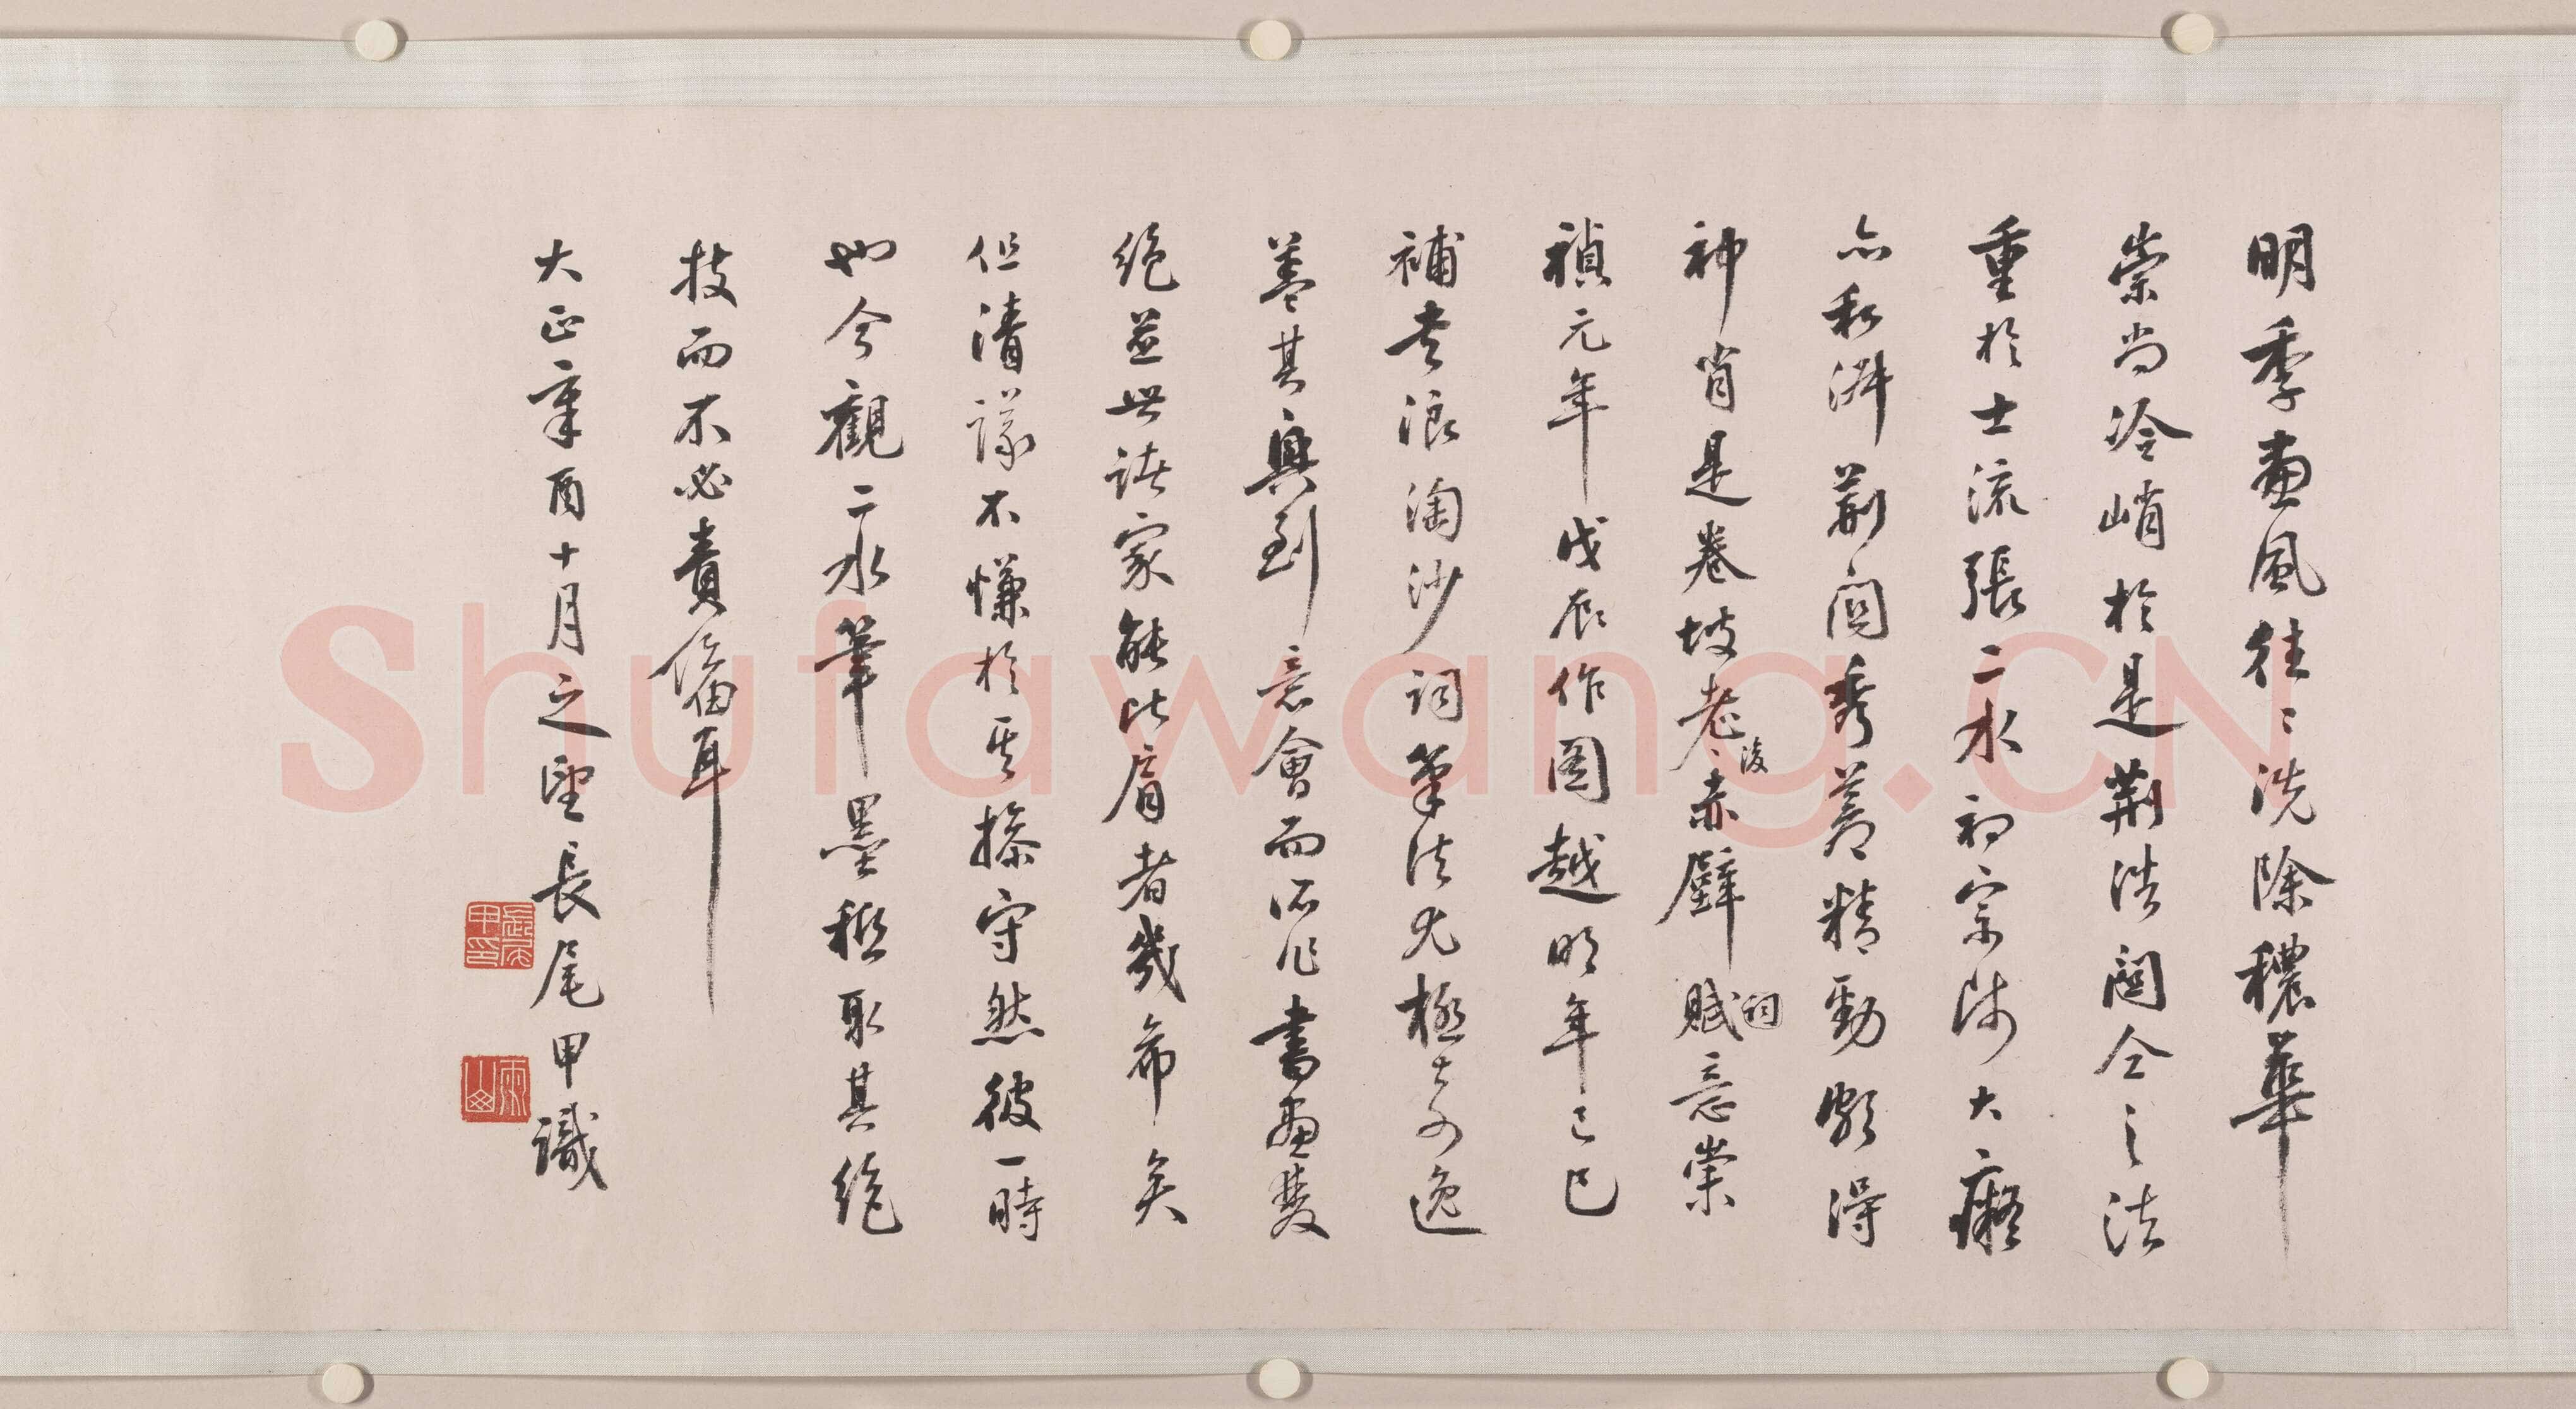 明季畫風往〻洗除穠華
崇尚冷峭於是荊浩關仝之法
重於士流張二水初宗陟大癡
亦私淑荊關秀蒼精勁頗得
神肖是卷坡老後赤壁賦詞意崇
禎元年戊辰作圖越明年己巳
補書浪淘沙詞筆法尤極奇逸
蓋其興到意會而所作書畫雙
絕並世諸家能比肩者幾希矣
但清議不慊於其操守然彼一時
也今觀二水筆墨極取其絕
技而不必責備耳
大正辛酉十月之望長尾甲識
長尾甲印
雨山
Shufawang.CN